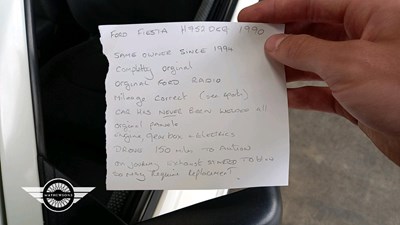 FORD FIESTA H952 OEQ 1990
SAME OWNER SINCE 1994
Completly orginal
orginal FORD RADIO
Milage correct (see mots)
CAR HAS NEVER BEEN WELDED all
orginal panels
engine, gearbox + electrics
DROVE 150 miles TO auction
on journey Exhaust STARTED TO blow
so may Require Replacement
MATHEWSONS